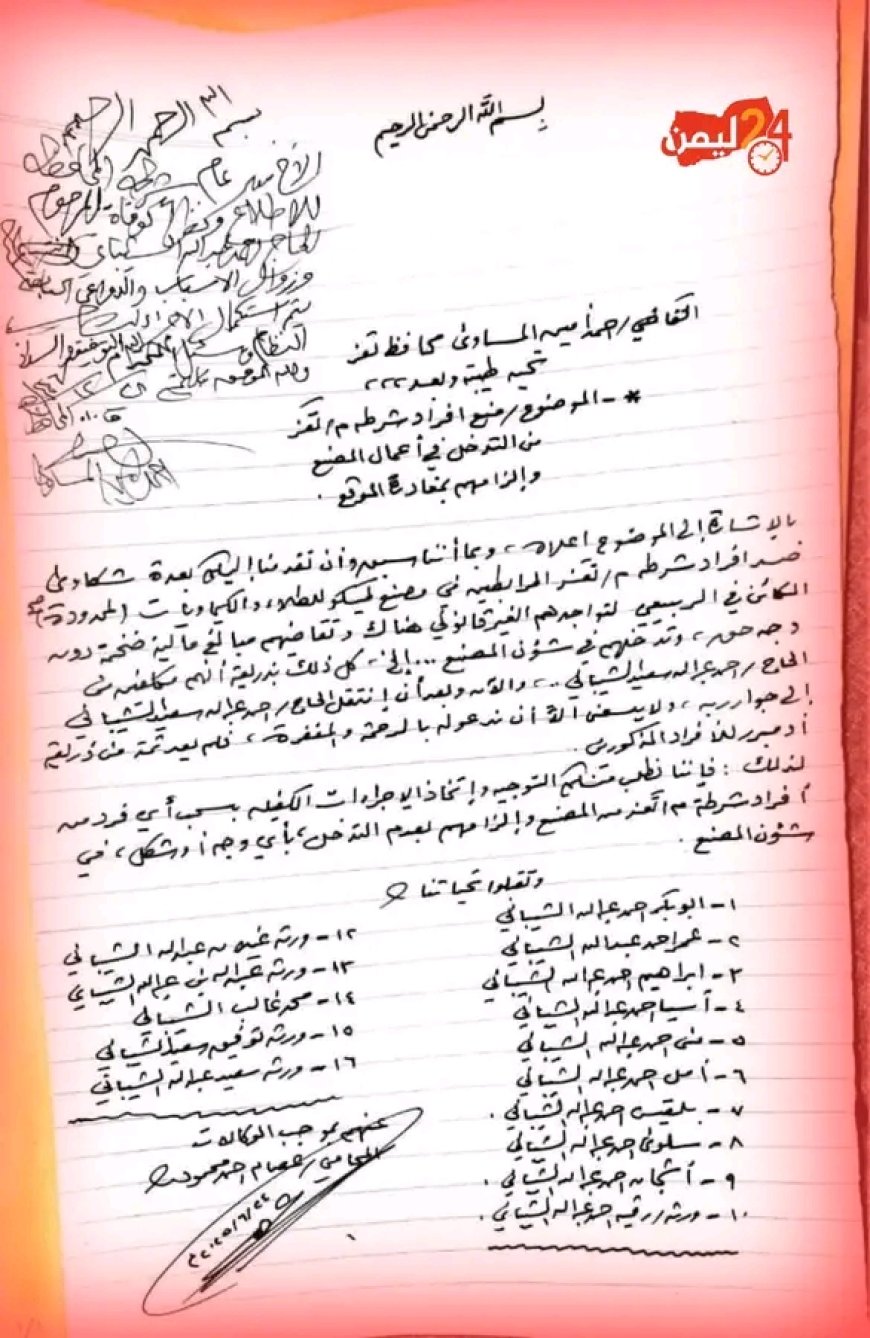 بسم الله الرحمن الرحيم
24 ليمن
بسم الله الرحمن الرحيم
الأخ مدير عام شرطة المحافظة
للاطلاع ونظراً لوفاة المرحوم
الحاج احمد عبدالله الشيباني
وزوال الاسباب والدواعي السابقة
يتم استكمال الاجراءات
القاضي/ احمد أمين المساوى محافظ تعز
تحيه طيبة وبعد،،،
* - الموضوع/ منع افراد شرطه م/تعز
من التدخل في أعمال المصنع
وإلزامهم بمغادرة الموقع.
بالإشارة إلى الموضوع اعلاه، وبما أننا سبق وأن تقدمنا إليكم بعدة شكاوى
ضد افراد شرطه م/تعز المرابطين في مصنع للطلاء والكيماويات (المحدودة)
الكائن في الربيعي لتواجدهم الغير قانوني هناك وتقاضيهم مبالغ مالية ضخمة دون
وجه حق، وتدخلهم في شؤون المصنع ... إلخ، كل ذلك بذريعة أنهم مكلفين من
الحاج/ احمد عبدالله سعيد الشيباني .. والآن وبعد أن إنتقل الحاج/ احمد عبدالله سعيد الشيباني
إلى جوار ربه، ولا يسعنى ألا أن ندعو له بالرحمة والمغفرة، فلم يعد ثمة من ذريعة
أو مبرر للأفراد المذكورين.
لذلك: فإننا نطلب منكم التوجيه وإتخاذ الإجراءات الكفيله بسحب أي فرد من
أفراد شرطة م/تعز من المصنع وإلزامهم بعدم التدخل، بأي وجه أو شكل، في
شؤون المصنع.
وتقبلوا تحياتنا
١- ابوبكر احمد عبدالله الشيباني
٢- عمر احمد عبدالله الشيباني
٣- ابراهيم احمد عبدالله الشيباني
٤- آسيا احمد عبدالله الشيباني
٥- منى احمد عبدالله الشيباني
٦- أمل احمد عبدالله الشيباني
٧- بلقيس احمد عبدالله الشيباني.
٨- سلوى احمد عبدالله الشيباني
٩- أشجان احمد عبدالله الشيباني.
١٠- ورثه/ رقيه احمد عبدالله الشيباني.
١٢- ورثة عبدالله الشيباني
١٣- ورثه عبدالله الشيباني
١٤- محمد غالب الشيباني
١٥- ورثه توفيق سعيد الشيباني
١٦- ورثه سعيد عبدالله الشيباني
عنهم بموجب الوكالات
المحامي/ عصام احمد محمود